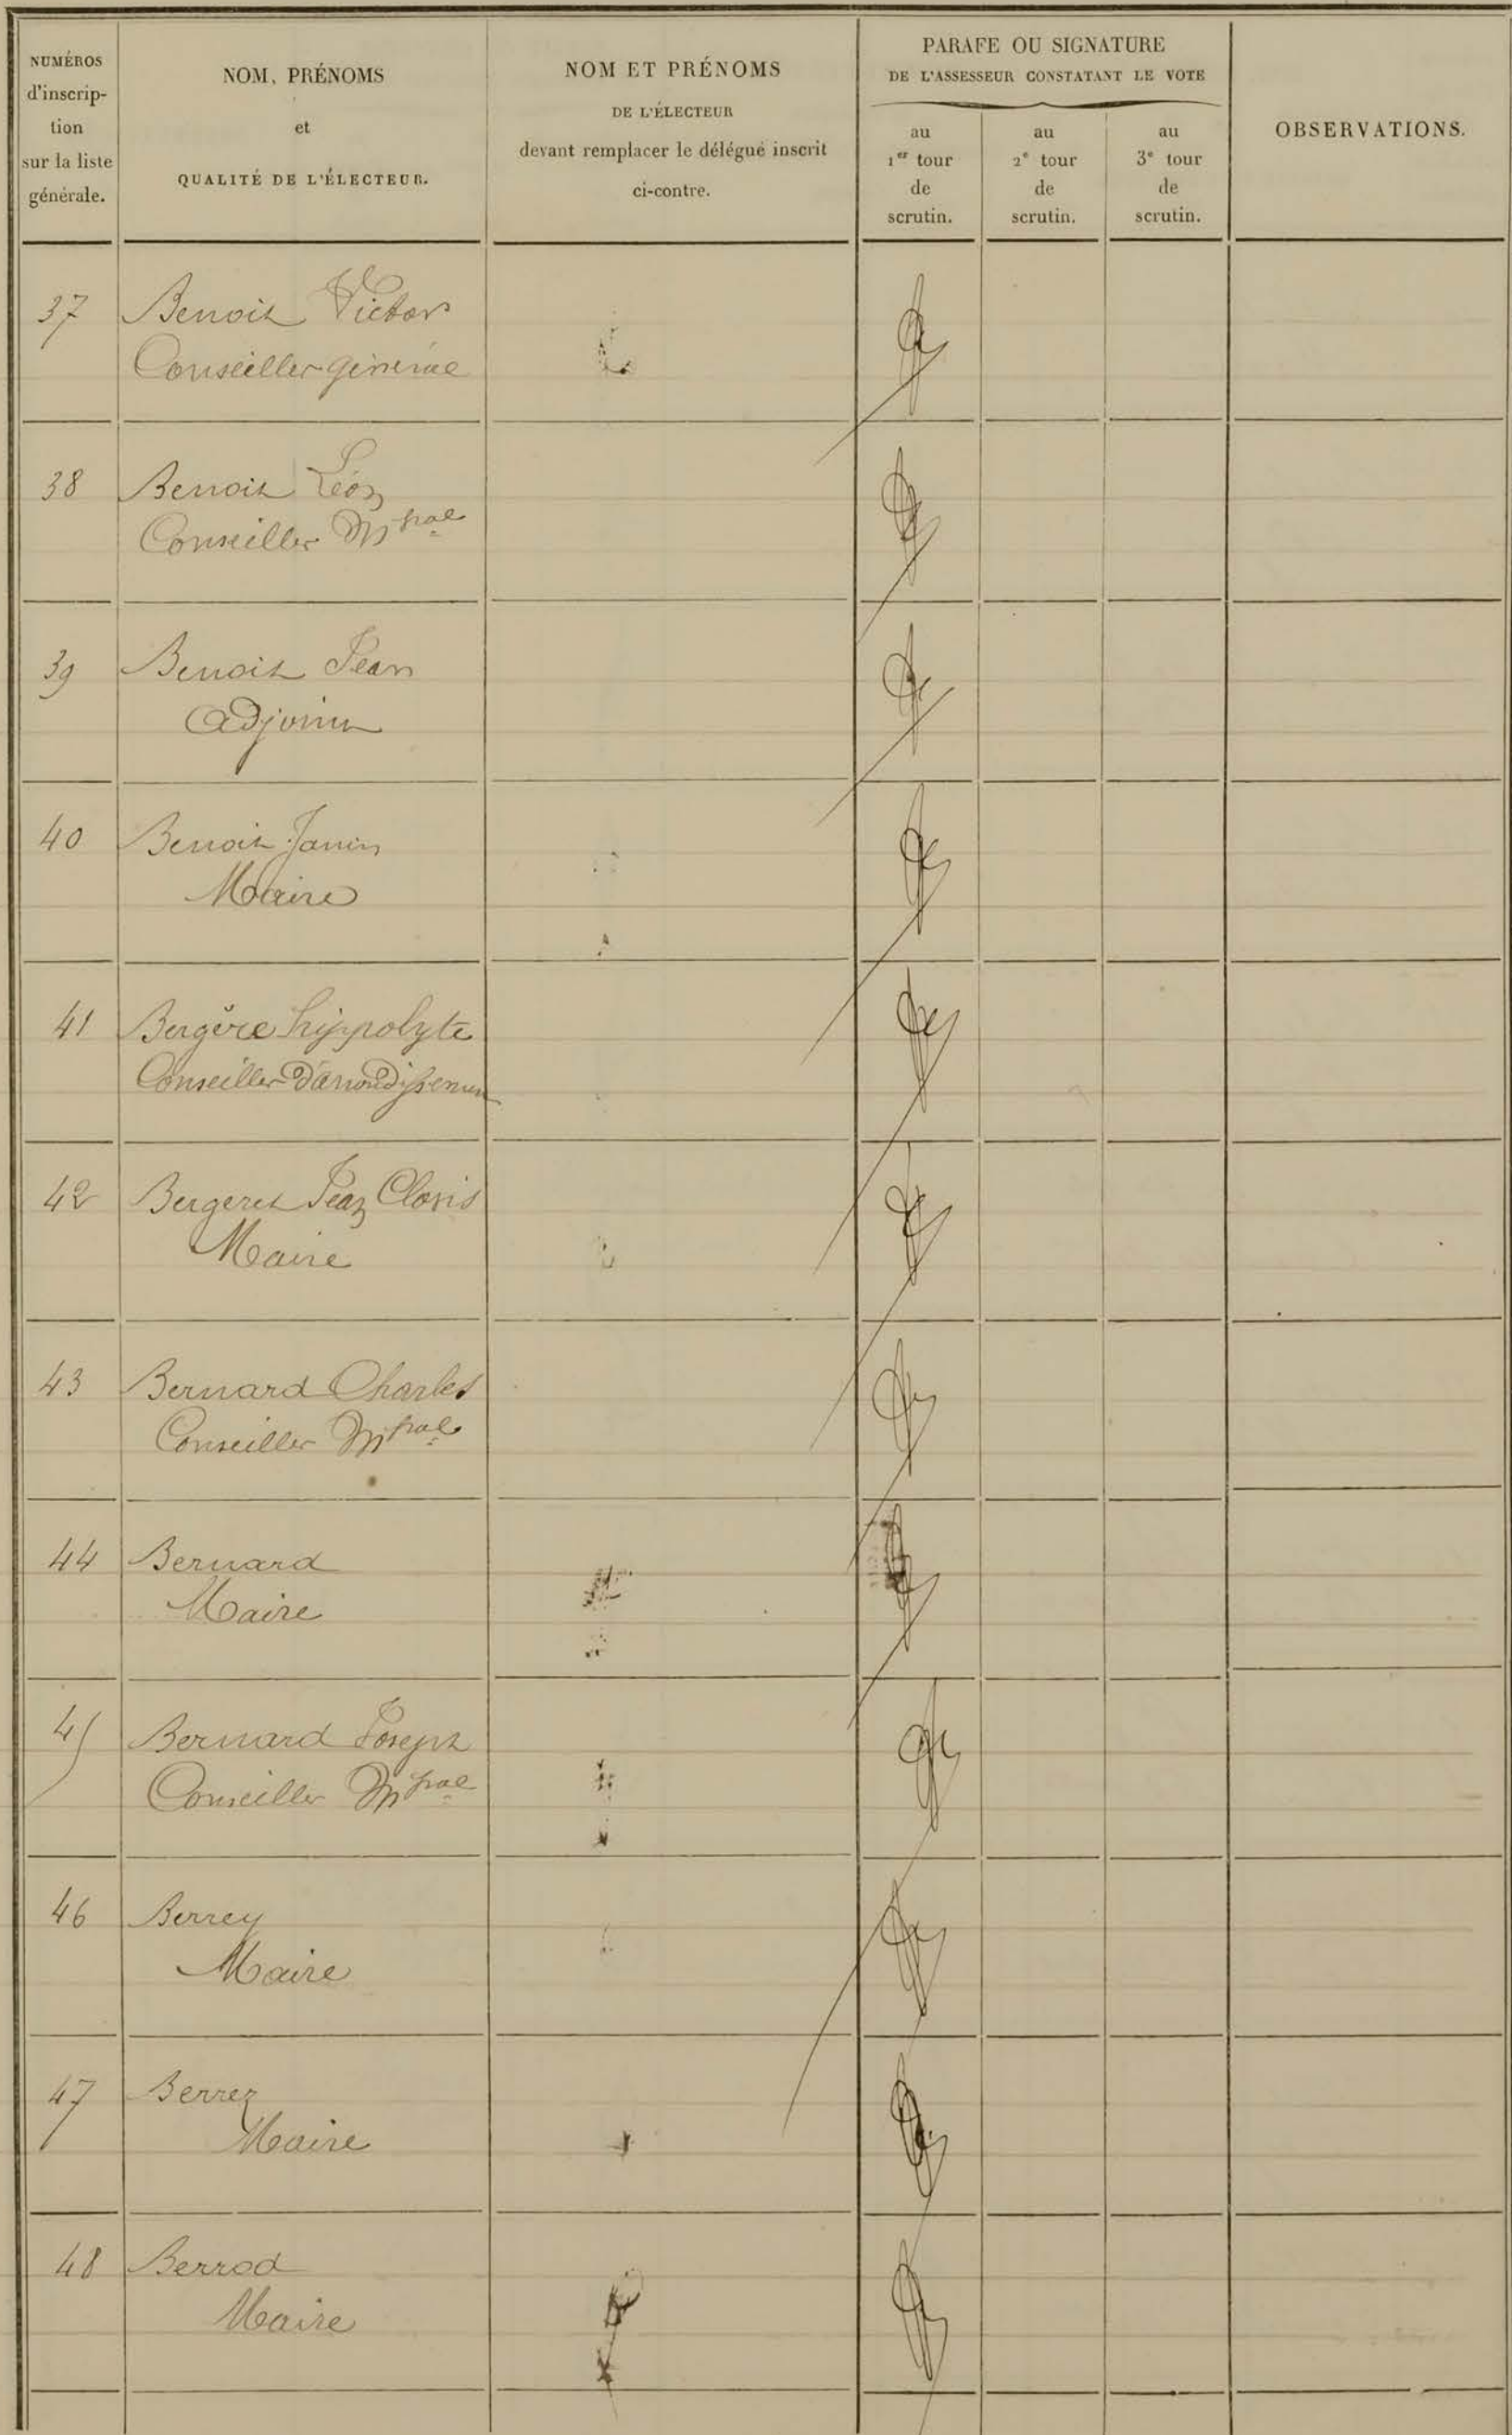 NUMÉROS
d'inscrip-
tion
sur la liste
générale.
NOM, PRÉNOMS
et
QUALITÉ DE L'ÉLECTEUR.
NOM ET PRÉNOMS
DE L'ÉLECTEUR
devant remplacer le délégué inscrit
ci-contre.
PARAFE OU SIGNATURE
DE L'ASSESSEUR CONSTATANT LE VOTE
au
1er tour
de
scrutin.
au
2e tour
de
scrutin.
au
3e tour
de
scrutin.
OBSERVATIONS.
37 Benoit Victor
Conseiller général
38 Benoit Léon
Conseiller Mpal
39 Benoit Jean
Adjoint
40 Benoit Janin
Maire
41 Bergère hippolyte
Conseiller d'arrondissement
42 Bergeret Jean Clovis
Maire
43 Bernard Charles
Conseiller Mpal
44 Bernard
Maire
45 Bernard Joseph
Conseiller Mpal
46 Berrey
Maire
47 Berrez
Maire
48 Berrod
Maire